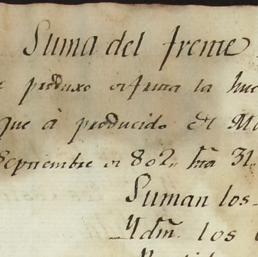 Suma del frente
produxo la hue
que á producido El M
Septiembre 802 hta 31
Suman los
Ydm. los